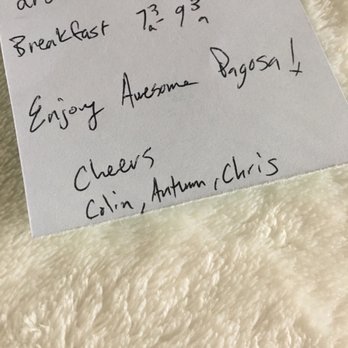 are
Breakfast 7³a - 9³a
Enjoy Awesome Pagosa!
Cheers
Colin, Autumn, Chris